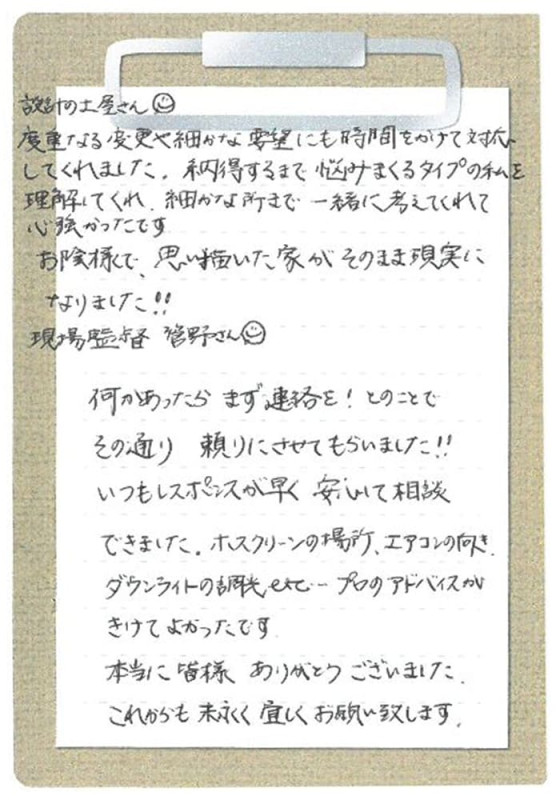 設計の土屋さん☺
度重なる変更や細かな要望にも時間をかけて対応
してくれました。納得するまで悩みまくるタイプの私を
理解してくれ、細かな所まで一緒に考えてくれて
心強かったです
お陰様で、思い描いた家がそのまま現実に
なりました!!
現場監督 菅野さん☺
何かあったらまず連絡を!とのことで
その通り 頼りにさせてもらいました!!
いつもレスポンスが早く 安心して相談
できました。ホスクリーンの場所、エアコンの向き、
ダウンライトの調光、etc… プロのアドバイスが
きけてよかったです
本当に皆様 ありがとうございました。
これからも末永く宜しくお願い致します。